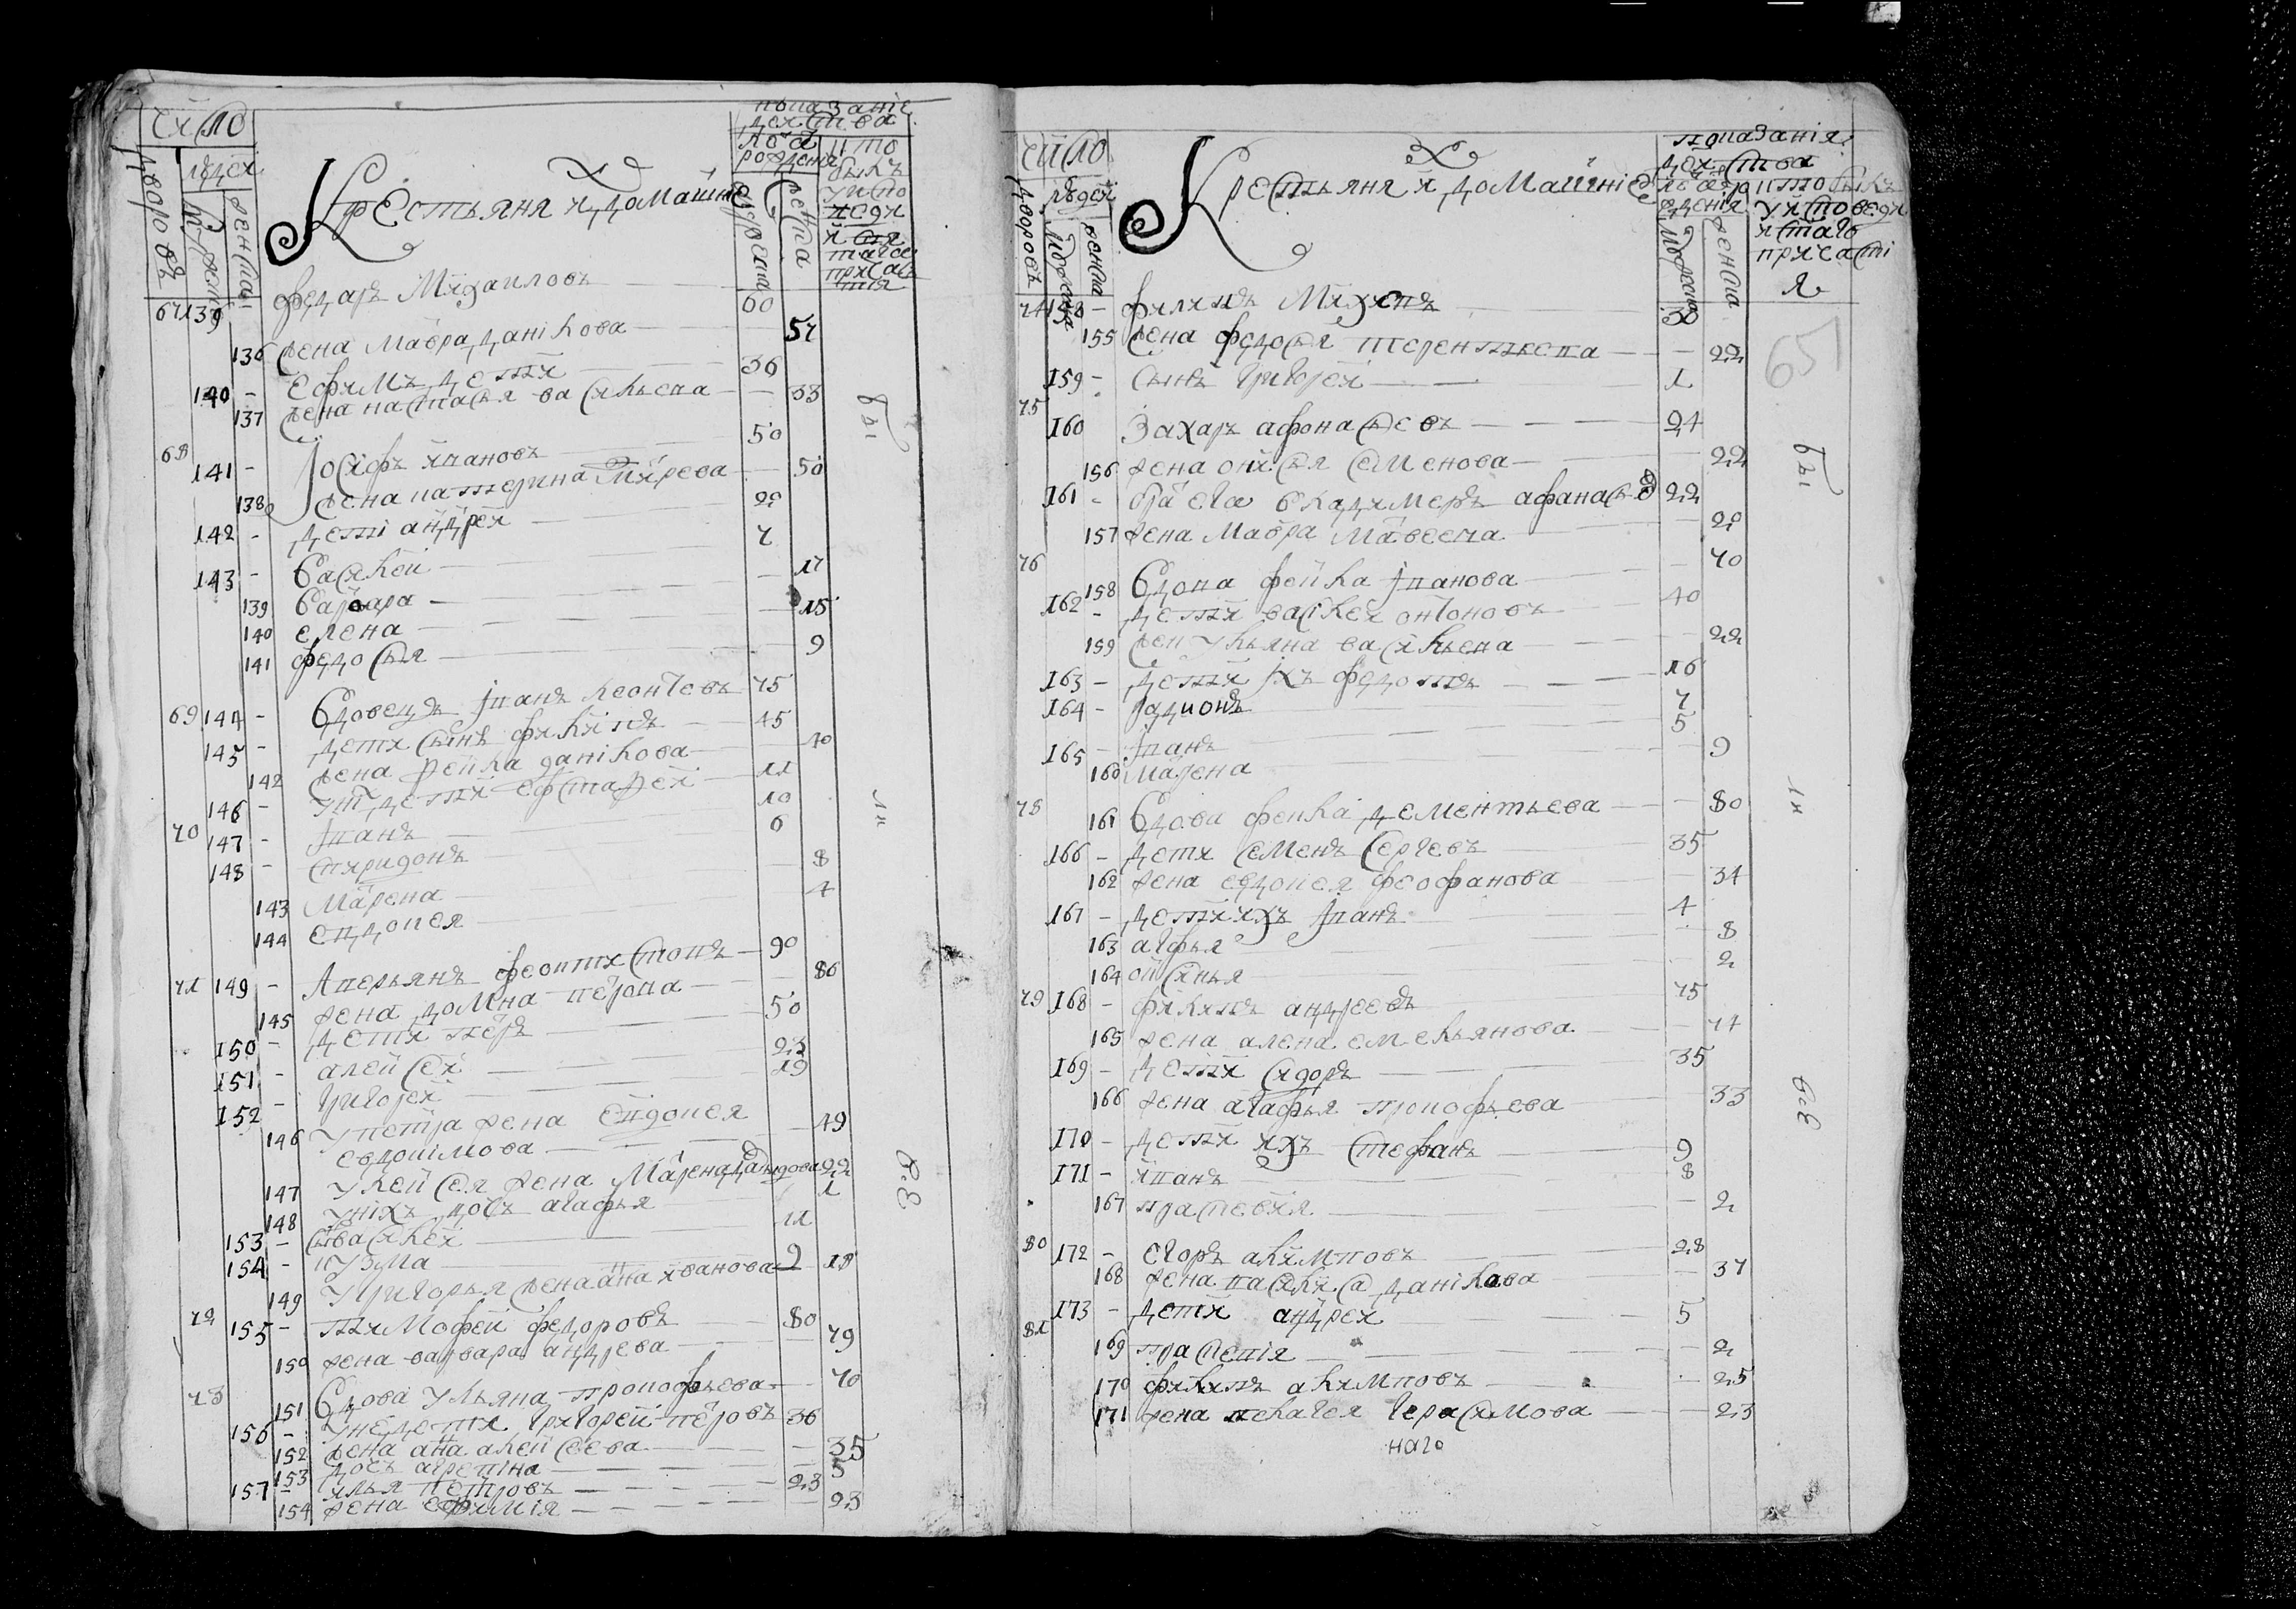 число
дворовъ
людей
мужеска
женска
Крестьяня и домашни
показанiе
действа
лѣта рожденiя
мужеска
женска
кто былъ у исповеди и стаго причастия
67 139 - федаръ Михаиловъ 60
136 жена Мавра данилова 57
140 - ефимъ дети 36
137 жена настасья васильева 33
68 141 - Иосифъ ивановъ 50
138 жена катерина 50
142 - детi андрей 20
143 - василей 7
139 варвара 17
140 елена 15
141 федосья 9
69 144 - вдовецъ iванъ леонтевъ 75
145 - дети сынъ филипъ 45
142 жена данiлова 40
146 - дети 11
70 147 - iванъ 10
148 - спиридонъ 6
143 марена 8
144 евдокея 4
71 149 - аверьянъ 90
145 жена домна петрова 86
150 - дети петръ 50
151 - алексей 23
152 - григорей 19
146 у петра жена евдокея 49
евдокiмова
147 жена марена 22
148 унiхъ дочь агафья 1
153 - василей 11
154 - кузма 9
149 у григорья жена анна иванова 18
72 155 - тимофей федоровъ 80
150 жена варвара андрева 79
73 151 вдова ульяна прокофьева 70
156 - унее дети григорей петровъ 36
152 жена анна алексеева 35
153 дочь агрепiна 5
157 - илья петровъ 23
154 жена ефимiя 23
бы
ли
все
число
дворовъ
людей
мужеска
женска
Крестьяня и домашнiе
показанiя
действа
лѣта рожденiя
мужеска
женска
кто былъ у исповеди и стаго причастия
65
74 158 - филипъ 30
155 жена федосья терентьева 22
159 - сынъ григорей 1
75 160 Захаръ афонасьевъ 24
156 жена семенова 22
161 - брат ега владимеръ афанасьев 22
157 жена мавра 20
76 158 вдова фекла iванова 70
162 - дети василей антоновъ 40
159 жен ульяна васильева 22
163 - дети iхъ федотъ 16
164 - радионъ 7
165 - iванъ 5
160 марена 9
78 161 вдова фекла дементьева 80
166 - дети семенъ сергевъ 35
162 жена евдокея феофанова 34
167 - дети ихъ iванъ 4
163 агфья 8
164 оксинья 2
79 168 - филипъ андреевъ 75
165 жена алена емельянова 74
169 - дети сидоръ 35
166 жена агафья прокофьева 33
170 - дети ихъ стефанъ 9
171 - иванъ 8
167 прасковия 2
80 172 - егоръ акимповъ 28
168 жена василиса данiлова 37
173 - дети андреи 5
81 169 праскевiя 2
170 филипъ акимповъ 25
171 жена пелагея герасимова 23
наго
бы
ли
все